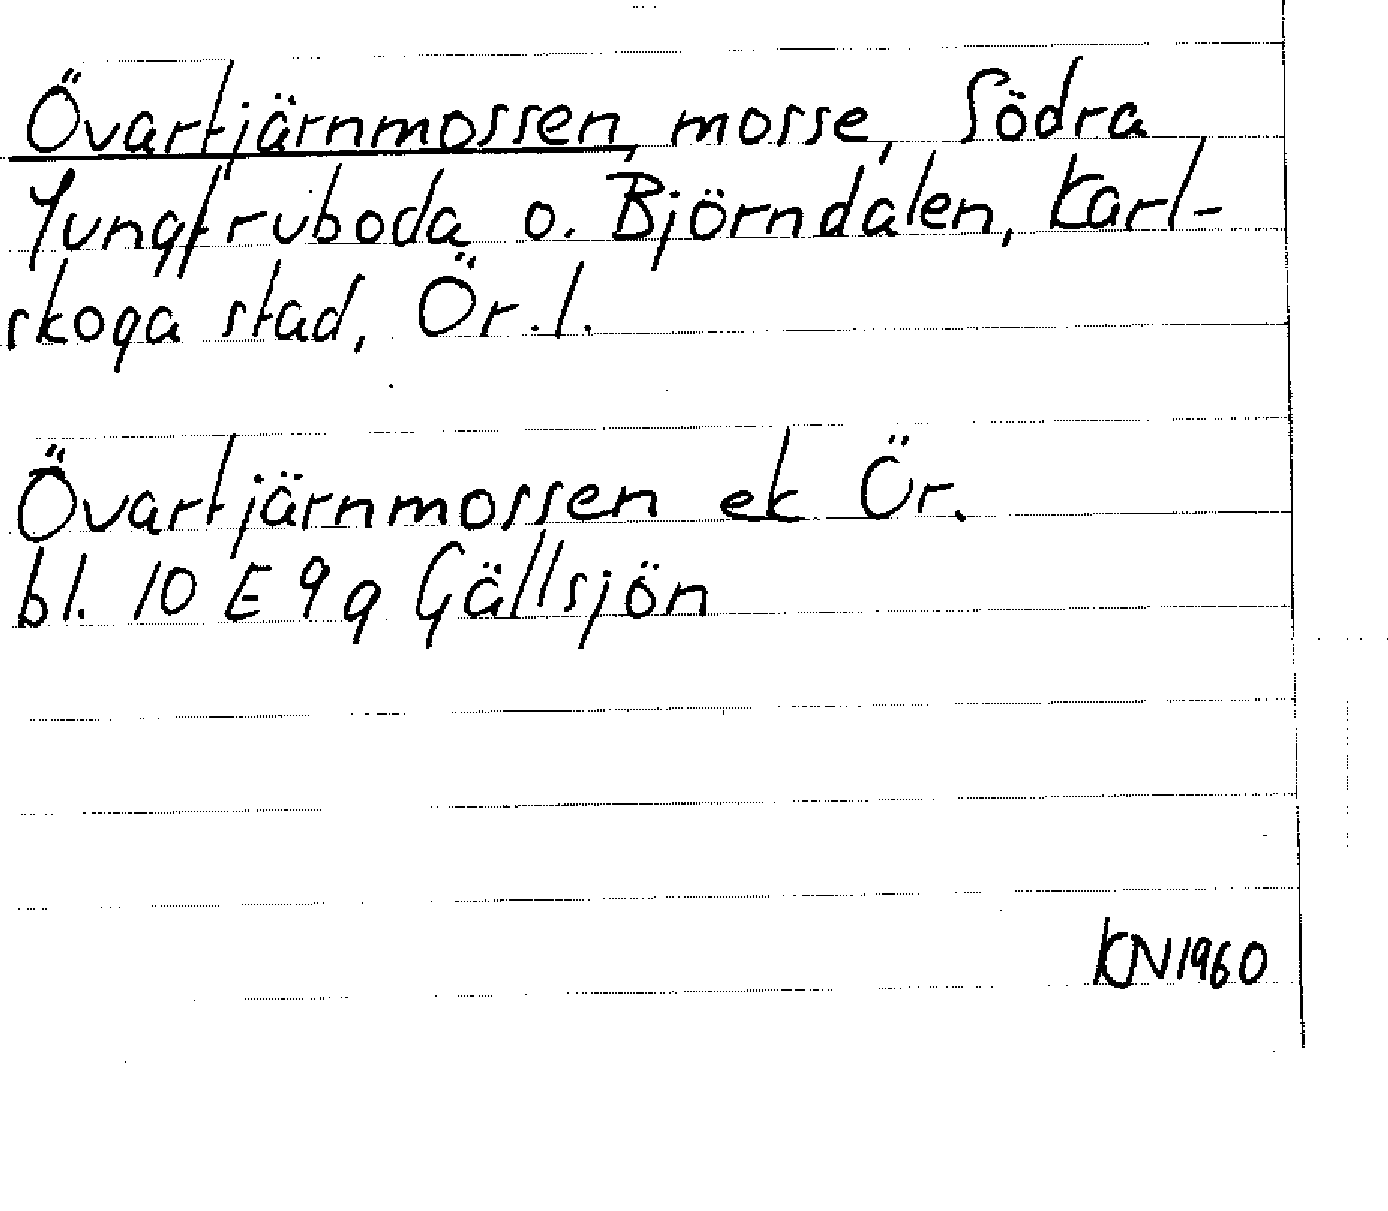 Övartjärnmossen, mosse, Södra
Jungfruboda o. Björndalen, Karl-
skoga stad, Ör. l.
Övartjärnmossen ek Ör.
bl. 10 E 9 g Gällsjön
KN1960